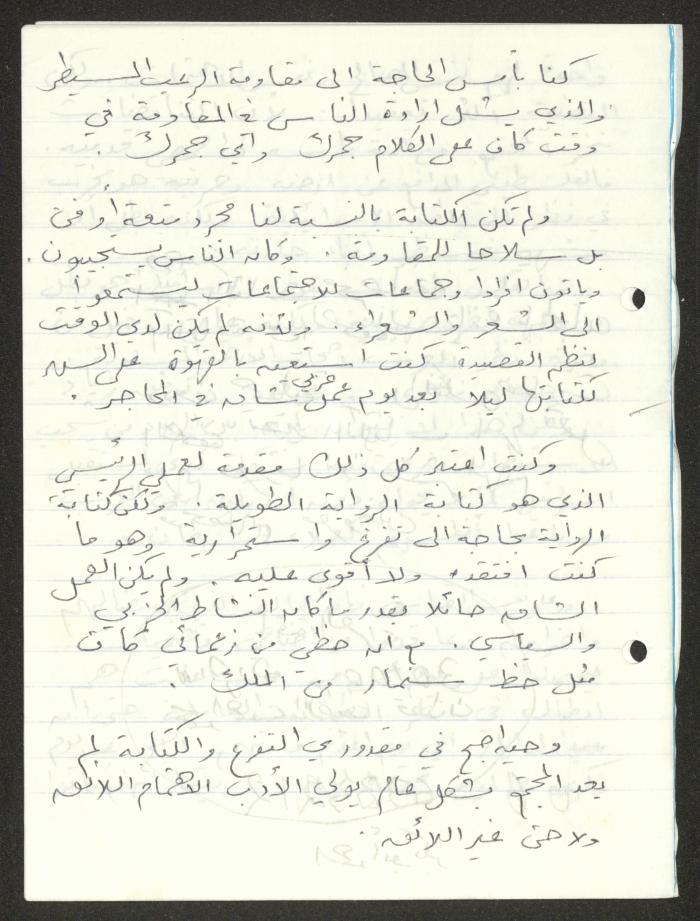 كنا بأمس الحاجة الى مقاومة الرعب المسيطر
والذي يشل ارادة الناس في المقاومة في
وقت كان على الكلام جمرك واي جمرك.
ولم تكن الكتابة بالنسبة لنا مجرد متعة أو فن
بل سلاحا للمقاومة. وكان الناس يستجيبون.
ويأتون افرادا وجماعات للاجتماعات ليستمعوا
الى الشعر والشعراء. ولأنه لم يكن لدي الوقت
لنظم القصيدة كنت استعين بالقهوة على السهر
لكتابتها ليلا بعد يوم عمل حزبي شاق في المحاجر.
وكنت اعتبر كل ذلك مقدمة لعملي الرئيسي
الذي هو كتابة الرواية الطويلة. ولكن كتابة
الرواية بحاجة الى تفرغ واستمرارية وهو ما
كنت افتقده ولا أقوى عليه. ولم يكن العمل
الشاق حائلا بقدر ما كان النشاط الحزبي
والسياسي. مع ان حظي من زعمائي كان
مثل حظ سنمار من الملك.
وحين اصبح في مقدوري التفرغ والكتابة لم
يعد المجتمع بشكل عام يولي الأدب الاهتمام اللائق
ولا حتى غير اللائق.